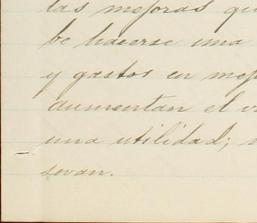 las mejoras qu
be hacerse una
y gastos en mej
aumentan el v
una utilidad;
sevan.